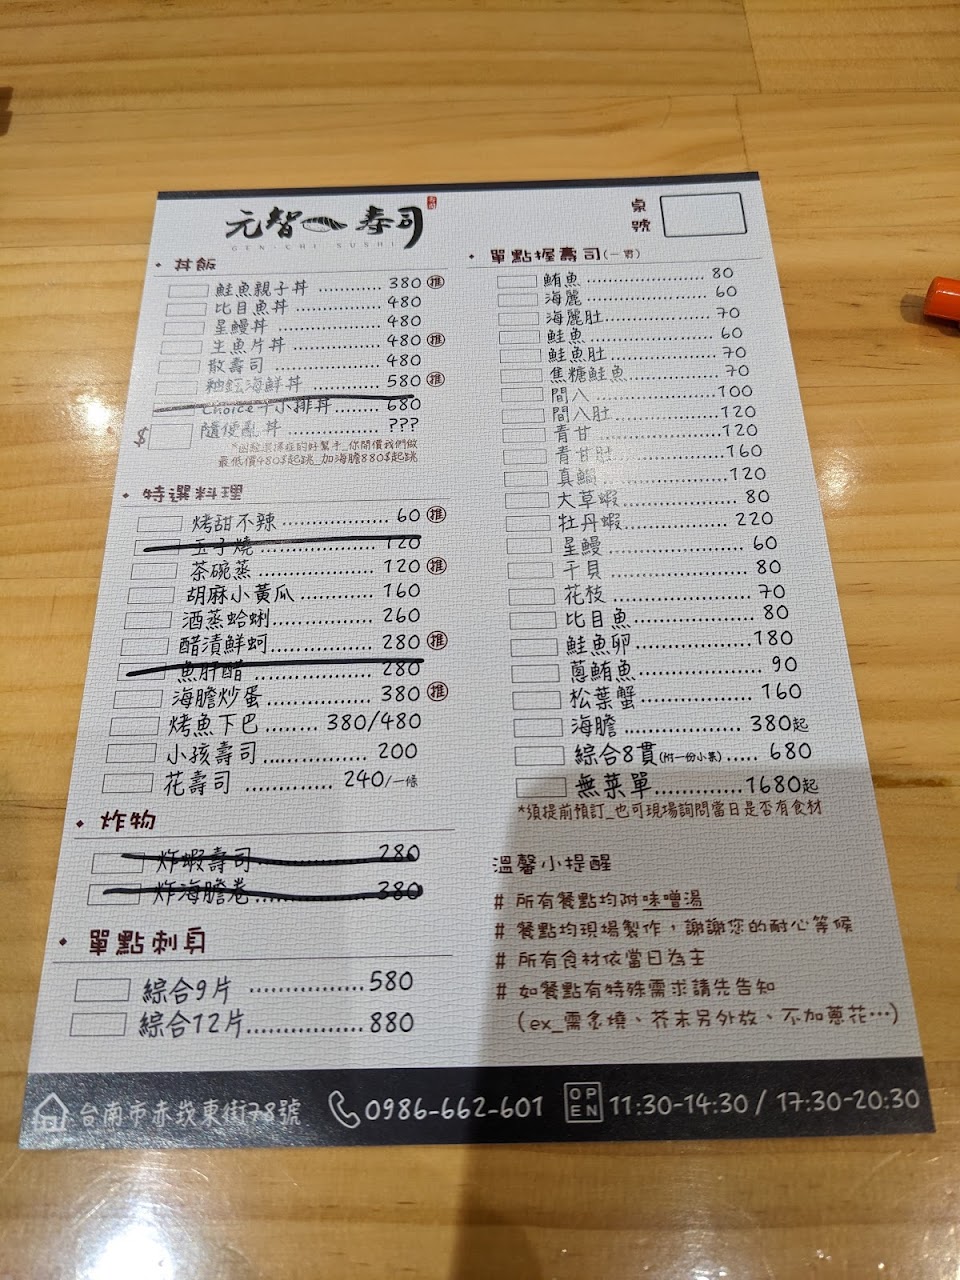 元智壽司
GEN-CHI SUSHI
桌號
丼飯
鮭魚親子丼 380 推
比目魚丼 480
星鰻丼 480
生魚片丼 480 推
散壽司 480
釉鈺海鮮丼 580 推
Choice牛小排丼 680
$ 隨便亂丼 ???
你開價我們做
最低價480$起跳_加海膽880$起跳
特選料理
烤甜不辣 60 推
玉子燒 120
茶碗蒸 120 推
胡麻小黃瓜 160
酒蒸蛤蜊 260
醋漬鮮蚵 280 推
魚肝醋 280
海膽炒蛋 380 推
烤魚下巴 380/480
小孩壽司 200
花壽司 240/一條
炸物
炸蝦壽司 280
炸海膽卷 380
單點刺身
綜合9片 580
綜合12片 880
單點握壽司(一貫)
鮪魚 80
海鱺 60
海鱺肚 70
鮭魚 60
鮭魚肚 70
焦糖鮭魚 70
間八 100
間八肚 120
青甘 120
青甘肚 160
真鯛 120
大草蝦 80
牡丹蝦 220
星鰻 60
干貝 80
花枝 70
比目魚 80
鮭魚卵 180
蔥鮪魚 90
松葉蟹 160
海膽 380起
綜合8貫(附一份小菜) 680
無菜單 1680起
*須提前預訂_也可現場詢問當日是否有食材
溫馨小提醒
# 所有餐點均附味噌湯
# 餐點均現場製作，謝謝您的耐心等候
# 所有食材依當日為主
# 如餐點有特殊需求請先告知
(ex_需炙燒、芥末另外放、不加蔥花…)
台南市赤崁東街78號 0986-662-601 OPEN 11:30-14:30 / 17:30-20:30